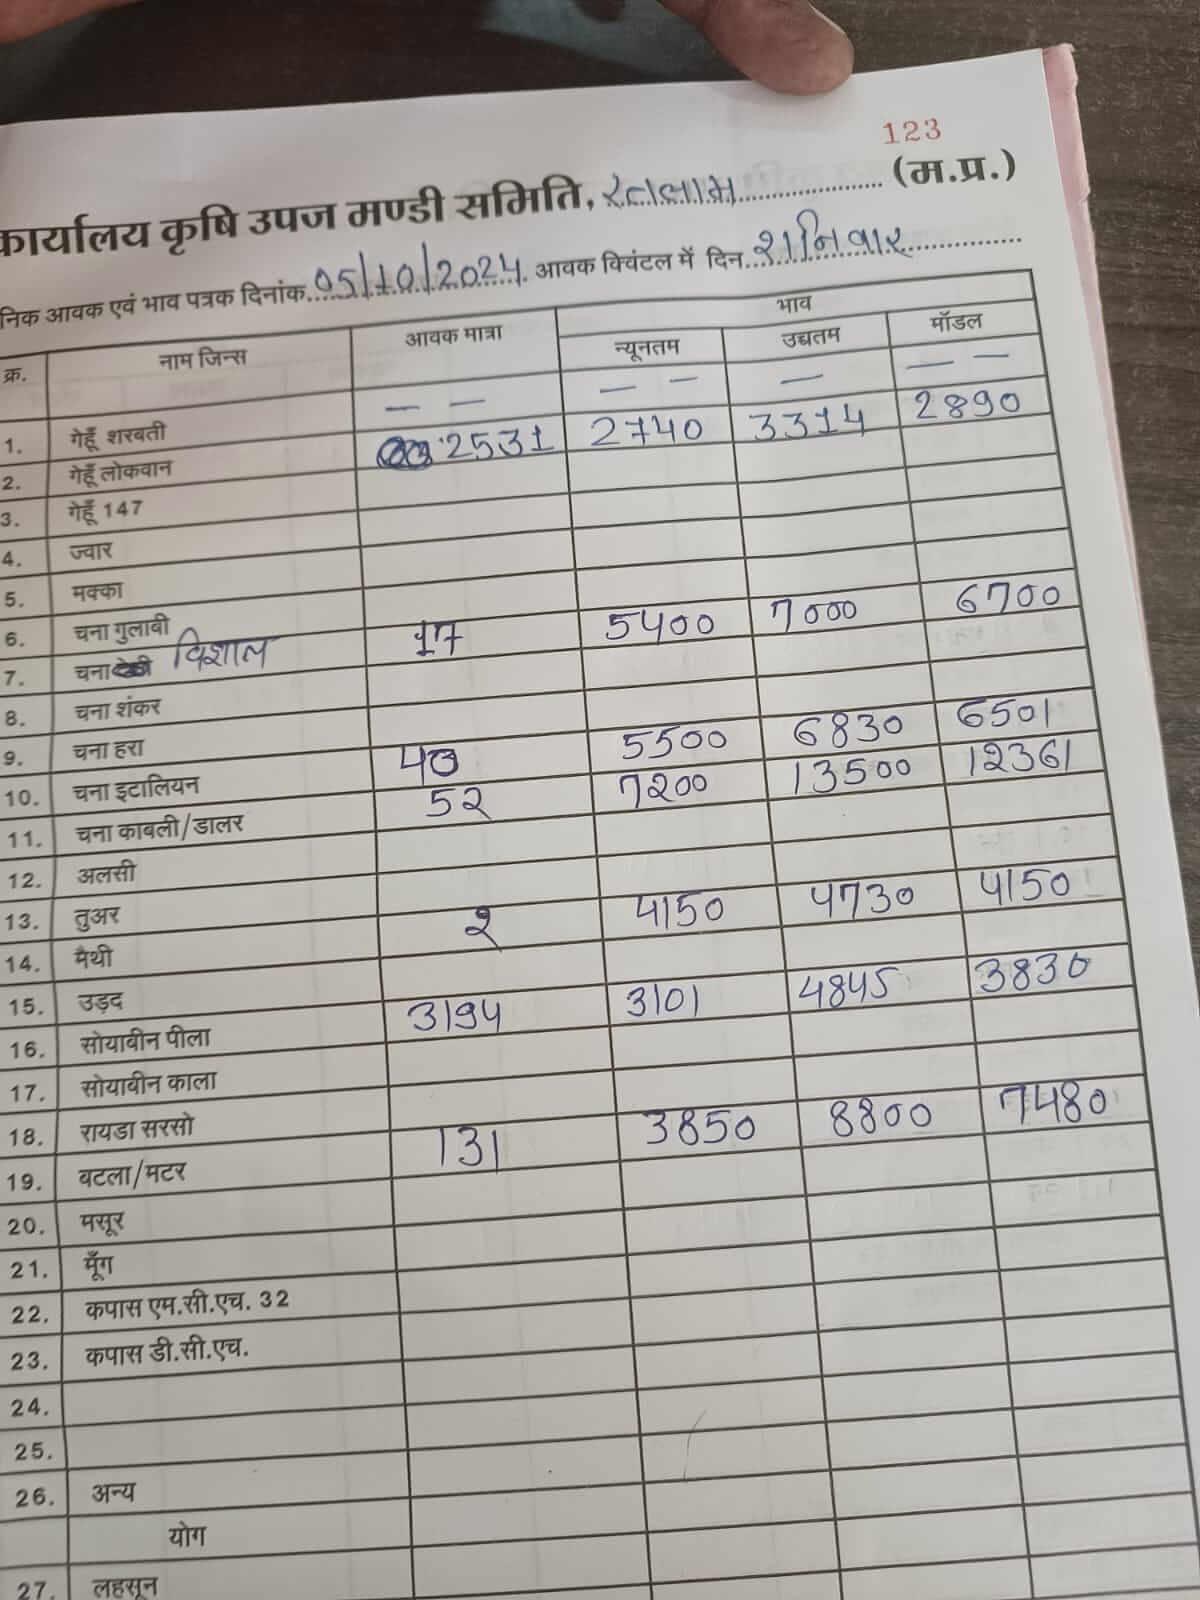 123
कार्यालय कृषि उपज मण्डी समिति, रतलाम (म.प्र.)
निक आवक एवं भाव पत्रक दिनांक 05/10/2024 आवक क्विंटल में दिन शनिवार
क्र. नाम जिन्स आवक मात्रा भाव
न्यूनतम उच्चतम मॉडल
1. गेहूँ शरबती — — — — — — —
2. गेहूँ लोकवान 2531 2740 3314 2890
3. गेहूँ 147
4. ज्वार
5. मक्का
6. चना गुलाबी
7. चना विशाल 17 5400 7000 6700
8. चना शंकर
9. चना हरा
10. चना इटालियन 40 5500 6830 6501
11. चना काबली/डालर 52 7200 13500 12361
12. अलसी
13. तुअर
14. मैथी 2 4150 4730 4150
15. उड़द
16. सोयाबीन पीला 3194 3101 4845 3830
17. सोयाबीन काला
18. रायडा सरसो
19. बटला/मटर 131 3850 8800 7480
20. मसूर
21. मूँग
22. कपास एम.सी.एच. 32
23. कपास डी.सी.एच.
24.
25.
26. अन्य
योग
27. लहसून